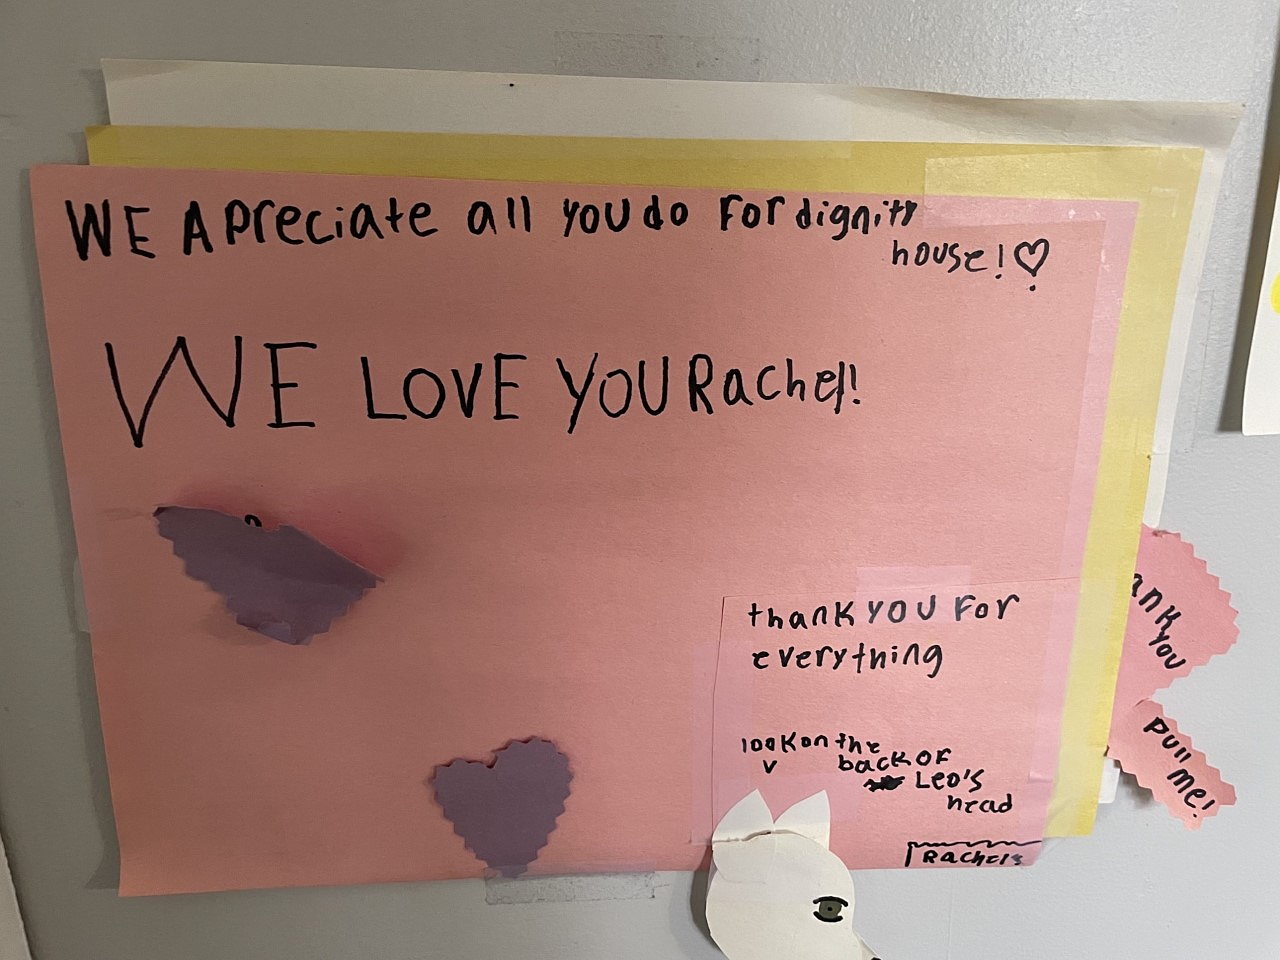 WE APreciate all YOU do For dignity
house! ♡
WE LOVE YOU Rachel!
thank YOU For
everything
look on the
back OF
Leo's
head
Rachels
ank
You
Pull
Me!